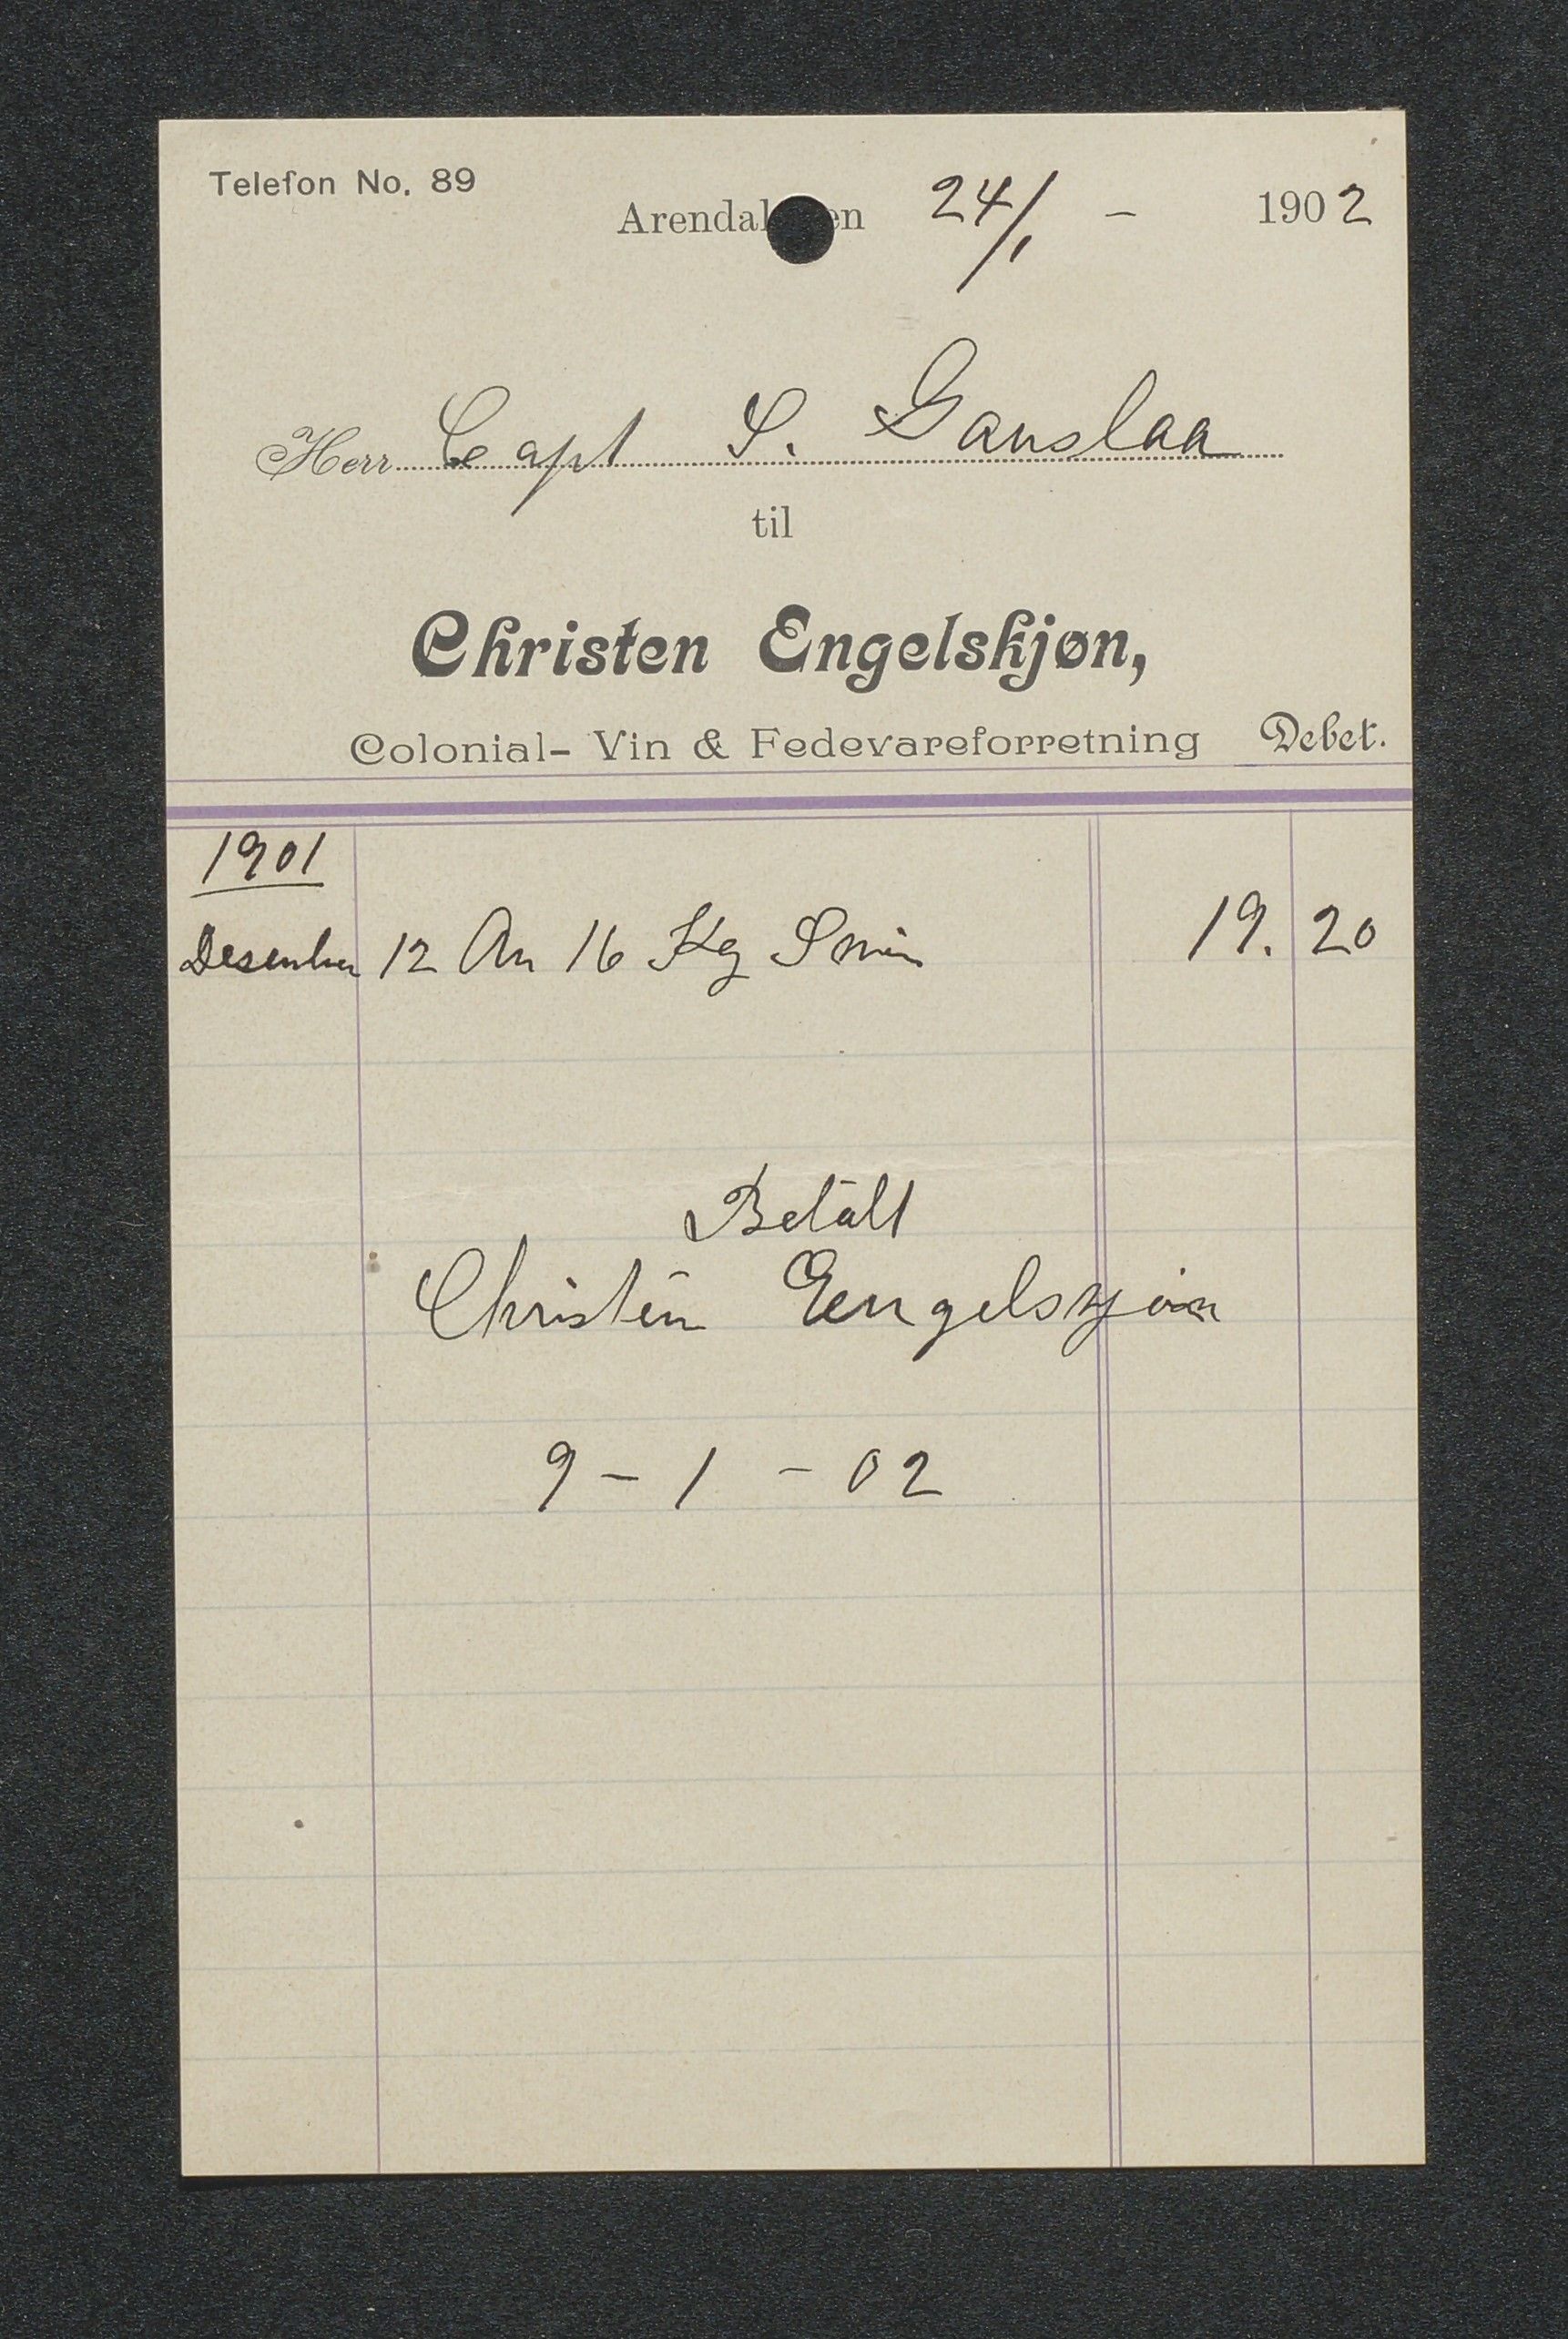 Telefon No. 89
Arendal den 24/1 - 1902
Herr Capt S. Gauslaa
til
Christen Engelskjøn,
Colonial- Vin & Fedevareforretning Debet.
1901
Desember 12 An 16 Kg Smør 19. 20
Betalt
Christen Engelskjøn
9 - 1 - 02